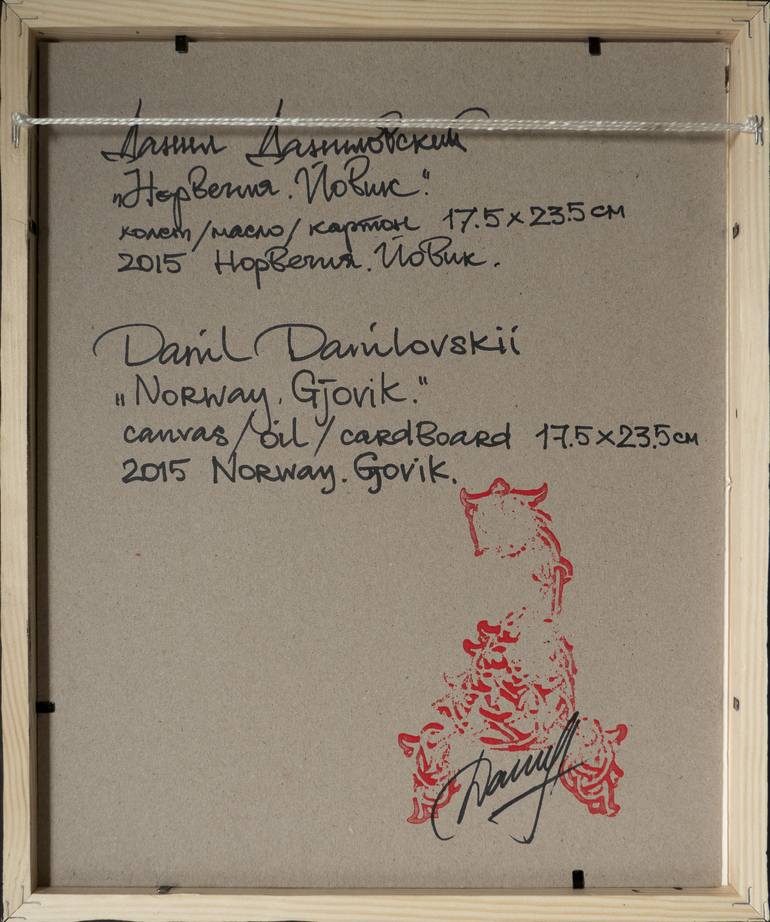 Данил Даниловский
„Норвегия. Йовик."
холст/масло/картон 17.5×23.5 см
2015 Норвегия. Йовик.
Danil Danilovskii
„Norway. Gjovik."
canvas/oil/cardBoard 17.5×23.5 см
2015 Norway. Govik.